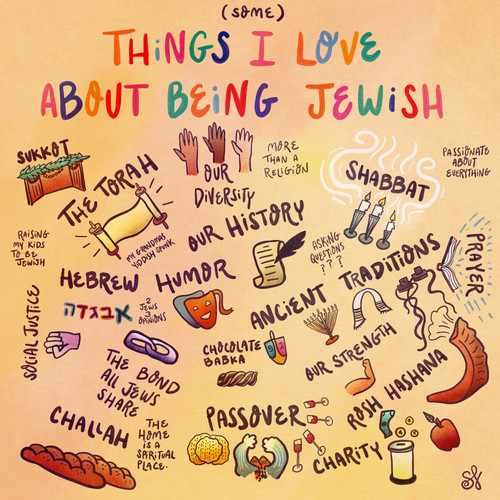 (SOME)
THINGS I LOVE
ABOUT BEING JEWISH
SUKKOT
THE TORAH
OUR
DIVERSITY
MORE
THAN A
RELIGION
SHABBAT
PASSIONATE
ABOUT
EVERYTHING
RAISING
MY KIDS
TO BE
JEWISH
MY GRANDMAS
YIDDISH SPUNK
OUR HISTORY
ASKING
QUESTIONS
? ? ?
PRAYER
HEBREW
אבגדה
HUMOR
2
JEWS
3
OPINIONS
ANCIENT TRADITIONS
SOCIAL JUSTICE
THE BOND
ALL JEWS
SHARE
CHOCOLATE
BABKA
OUR STRENGTH
ROSH HASHANA
CHALLAH
THE
HOME
IS A
SPIRITUAL
PLACE.
PASSOVER
CHARITY